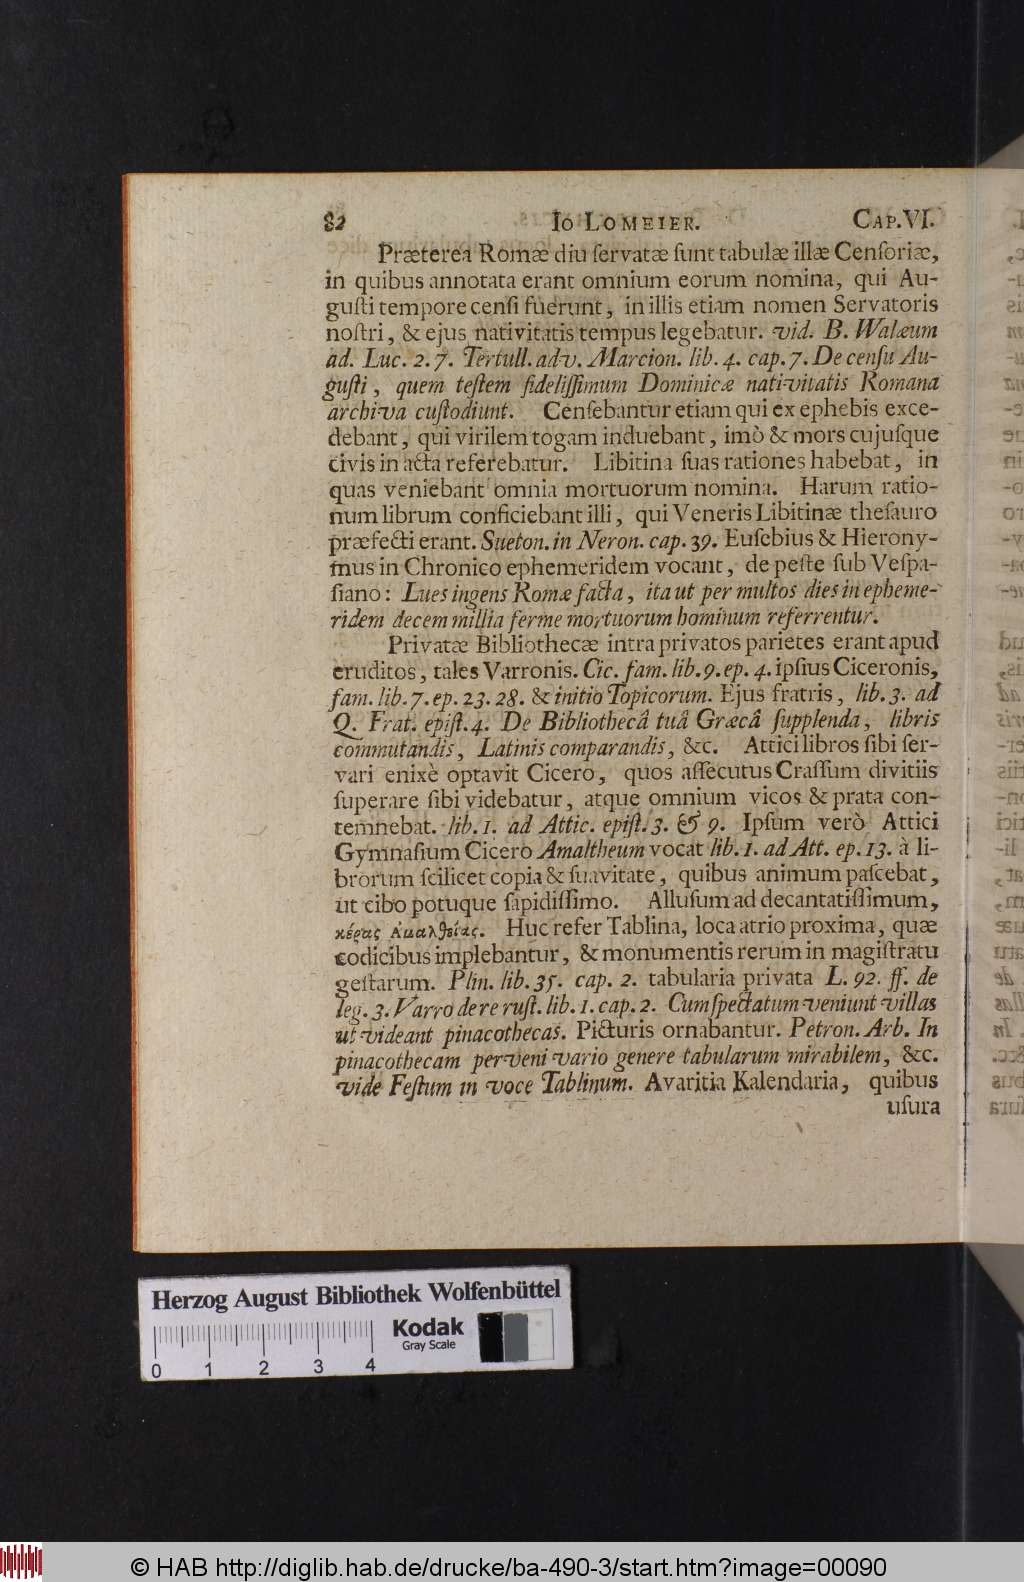 82 Io Lomeier. Cap. VI.
Præterea Romæ diu ſervatæ ſunt tabulæ illæ Cenſoriæ,
in quibus annotata erant omnium eorum nomina, qui Au-
guſti tempore cenſi fuerunt, in illis etiam nomen Servatoris
noſtri, & ejus nativitatis tempus legebatur. vid. B. Walæum
ad. Luc. 2. 7. Tertull. adv. Marcion. lib. 4. cap. 7. De cenſu Au-
guſti, quem teſtem fideliſſimum Dominicæ nativitatis Romana
archiva cuſtodiunt. Cenſebantur etiam qui ex ephebis exce-
debant, qui virilem togam induebant, imò & mors cujuſque
civis in acta referebatur. Libitina ſuas rationes habebat, in
quas veniebant omnia mortuorum nomina. Harum ratio-
num librum conficiebant illi, qui Veneris Libitinæ theſauro
præfecti erant. Sueton. in Neron. cap. 39. Euſebius & Hierony-
mus in Chronico ephemeridem vocant, de peſte ſub Veſpa-
ſiano: Lues ingens Romæ facta, ita ut per multos dies in epheme-
ridem decem millia ferme mortuorum hominum referrentur.
Privatæ Bibliothecæ intra privatos parietes erant apud
eruditos, tales Varronis. Cic. fam. lib. 9. ep. 4. ipſius Ciceronis,
fam. lib. 7. ep. 23. 28. & initio Topicorum. Ejus fratris, lib. 3. ad
Q. Frat. epiſt. 4. De Bibliothecâ tuâ Græcâ ſupplenda, libris
commutandis, Latinis comparandis, &c. Attici libros ſibi ſer-
vari enixè optavit Cicero, quos aſſecutus Craſſum divitiis
ſuperare ſibi videbatur, atque omnium vicos & prata con-
temnebat. lib. 1. ad Attic. epiſt. 3. & 9. Ipſum verò Attici
Gymnaſium Cicero Amaltheum vocat lib. 1. ad Att. ep. 13. à li-
brorum ſcilicet copia & ſuavitate, quibus animum paſcebat,
ut cibo potuque ſapidiſſimo. Alluſum ad decantatiſſimum,
κέρας Αμαλθείας. Huc refer Tablina, loca atrio proxima, quæ
codicibus implebantur, & monumentis rerum in magiſtratu
geſtarum. Plin. lib. 35. cap. 2. tabularia privata L. 92. ff. de
leg. 3. Varro de re ruſt. lib. 1. cap. 2. Cum ſpectatum veniunt villas
ut videant pinacothecas. Picturis ornabantur. Petron. Arb. In
pinacothecam perveni vario genere tabularum mirabilem, &c.
vide Feſtum in voce Tablinum. Avaritia Kalendaria, quibus
uſura
Herzog August Bibliothek Wolfenbüttel
Kodak
Gray Scale
0 1 2 3 4
© HAB http://diglib.hab.de/drucke/ba-490-3/start.htm?image=00090